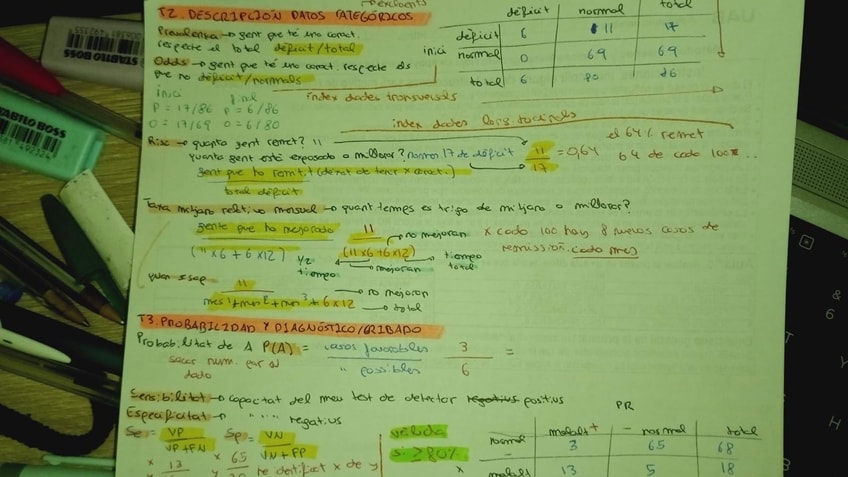 T2. DESCRIPCIÓN DATOS CATEGÓRICOS
Prevalença → gent que té una caract.
respecte el total déficit/total
Odds → gent que té una caract. respecte els
que no déficit/normals
déficit normal total
inici déficit 6 11 17
normal 0 69 69
total 6 80 86
inici final
P = 17/86 P = 6/86
O = 17/69 O = 6/80
index dades transversals
index dades longitudinals
Risc → quanta gent remet? 11
quanta gent està exposada a millorar? només 17 de déficit
11/17 = 0,64
el 64% remet
64 de cada 100
gent que ha remitit (deixat de tenir x caract.)
total déficit
Taxa mitjana relativa mensual → quant temps es triga de mitjana a millorar?
gente que ha mejorado 11
(" x6 + 6x12) (11x6+6x12)
no mejoran
1/2 tiempo
mejoran
tiempo total
x cada 100 hay 8 nuevos casos de
remissión cada mes
quan 11 no mejoran
mes¹+mes²+mes³+6x12 total
T3. PROBABILIDAD Y DIAGNÓSTICO/CRIBADO
Probabilitat de A P(A) = casos favorables 3 =
" possibles 6
sacar num. par al
dado
Sensibilitat → capacitat del meu test de detectar negatius positius
Especificitat → " " " negatius
PR
Se = VP Sp = VN
VP+FN VN+FP
vàlida
si ≥80%
malalt + - normal total
normal - 3 65 68
malalt 13 5 18
x 13 y 65
identificat x de y